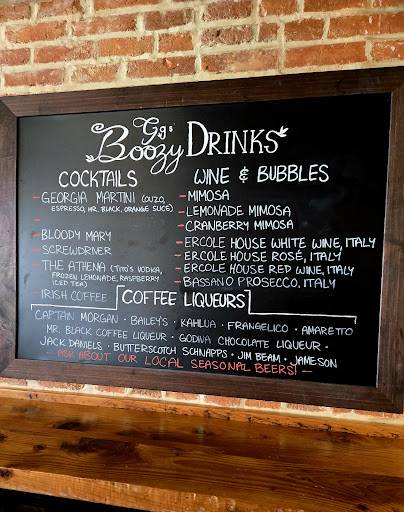 Gg's
Boozy DRINKS
COCKTAILS
- GEORGIA MARTINI (OUZO,
ESPRESSO, MR. BLACK, ORANGE SLICE)
-
BLOODY MARY
- SCREWDRIVER
- THE ATHENA (TITO'S VODKA,
FROZEN LEMONADE, RASPBERRY
ICED TEA)
IRISH COFFEE
WINE & BUBBLES
- MIMOSA
- LEMONADE MIMOSA
- CRANBERRY MIMOSA
- ERCOLE HOUSE WHITE WINE, ITALY
- ERCOLE HOUSE ROSÉ, ITALY
- ERCOLE HOUSE RED WINE, ITALY
- BASSANO PROSECCO, ITALY
COFFEE LIQUEURS
CAPTAIN MORGAN · BAILEY'S · KAHLUA · FRANGELICO · AMARETTO
MR. BLACK COFFEE LIQUEUR · GODIVA CHOCOLATE LIQUEUR ·
JACK DANIELS · BUTTERSCOTCH SCHNAPPS · JIM BEAM · JAMESON
- ASK ABOUT OUR LOCAL SEASONAL BEERS! -